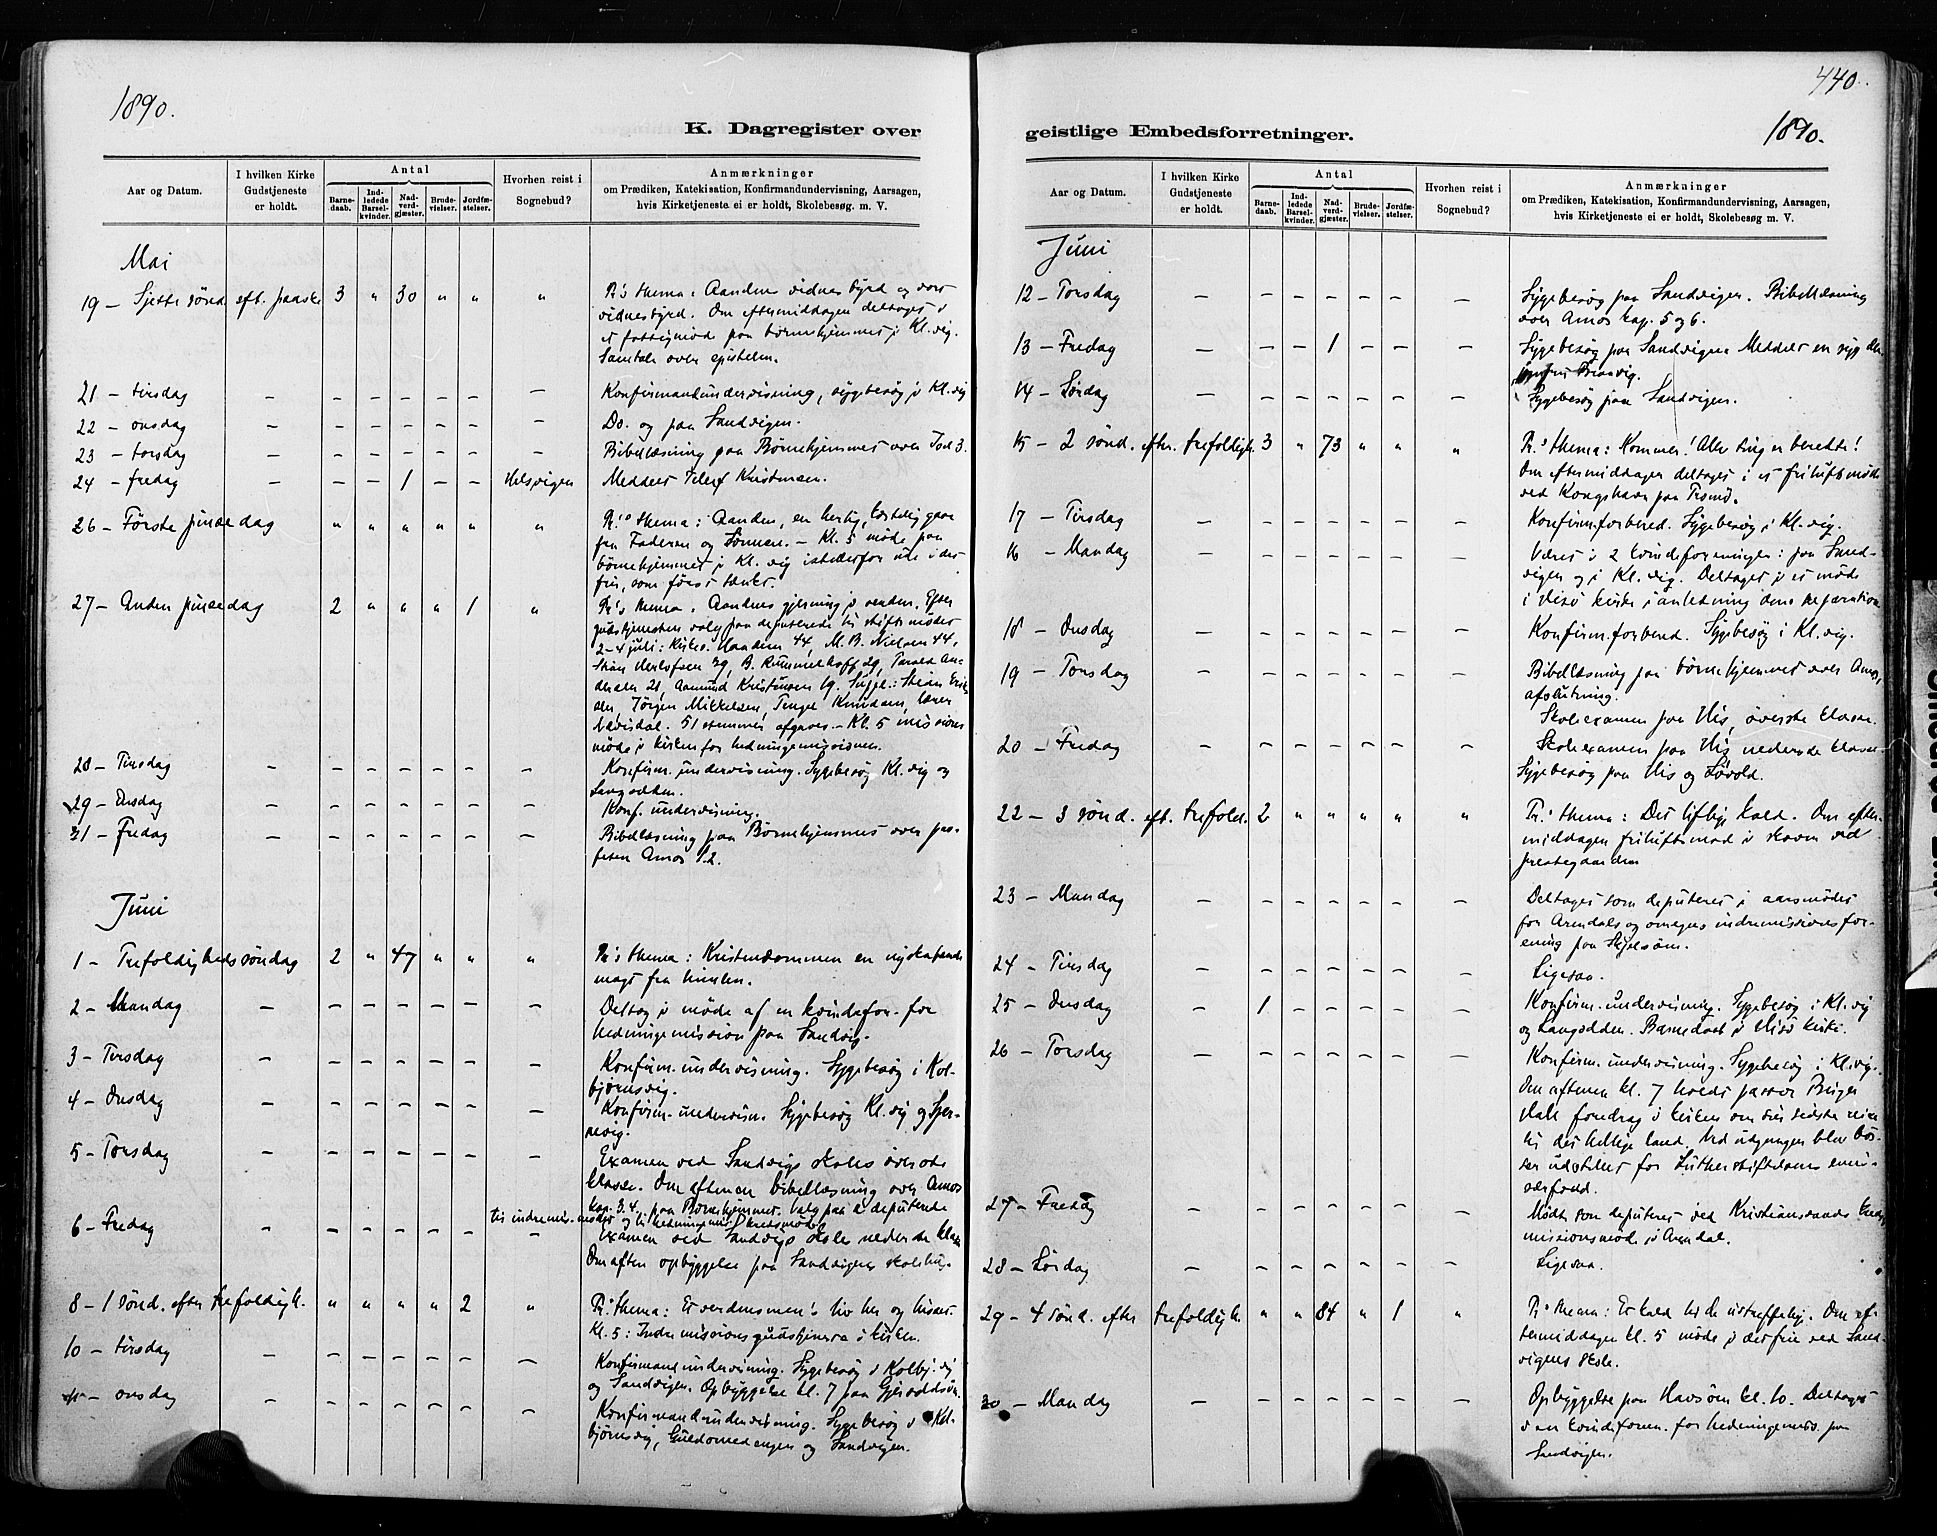 1890.
K. Dagregister over
Aar og Datum.
I hvilken Kirke Gudstjeneste er holdt.
Antal
Barne-daab.
Ind-ledede Barsel-kvinder.
Nad-verd-gjæster.
Brude-vielser.
Jordfæ-stelser.
Hvorhen reist i Sognebud?
Anmærkninger
om Prædiken, Katekisation, Konfirmandundervisning, Aarsagen,
hvis Kirketjeneste ei er holdt, Skolebesøg. m. V.
Mai
19 – Sjette sønd. eft. paaske 3 " 30 " " " Pr.s thema: Aandens vidnesbyrd og vort
vidnesbyrd. Om eftermiddagen deltaget i
et møde paa børnehjemmet i Kl.vig.
Samtale over epistelen.
21 – tirsdag – – – – – – – Konfirmandundervisning, sygebesøg i Kl.vig
22 – onsdag – – – – – – – Do. og paa Sandvigen.
23 – torsdag – – – – – – – Bibellæsning paa Børnehjemmet over Joel 3.
24 – fredag – – – 1 – – Hilsvigen Meddelt Kristensen.
26 – Første pinsedag " " " " " " Pr.s thema: Aanden, en herlig, gave
fra Faderen og Sønnen. – Kl. 5 møde paa
børnehjemmet i Kl.vig istedetfor ute i det
fri, som først tænkt.
27 – Anden pinsedag 2 " " " 1 " Pr.s thema: Aandens gjerning i verden. Efter
gudstjenesten valg paa deputerede til stiftsmødet
2–4 juli: 44, M. B. Nielsen 44,
29, B. Rummelhoff 29, Tarald An-
dersen 21, Aamund Kristensen 19. Suppl.:
Jørgen Mikkelsen, Knudsen, lærer
51 stemmer afgaves. – Kl. 5 missions
møde i kirken for hedningemissionen.
28 – Tirsdag – – – – – – – Konfirm.undervisning. Sygebesøg Kl.vig og
Langodden.
29 – Onsdag – – – – – – – Konf. undervisning.
31 – Fredag – – – – – – – Bibellæsning paa Børnehjemmet over pro-
feten Amos 1.2.
Juni
1 – Trefoldighedssøndag 2 " 47 " " " Pr.s thema: Kristendommen en nyskabende
magt fra himlen.
2 – Mandag – – – – – – – Deltog i møde af en kvindefor. for
hedningemission paa Sandvig.
3 – Tirsdag – – – – – – – Konfirm.undervisning. Sygebesøg i Kol-
bjørnsvig.
4 – Onsdag – – – – – – – Konfirm.undervisn. Sygebesøg Kl.vig og Gjer-
vig.
5 – Torsdag – – – – – – – Examen ved Sandvigs skoles øverste
klasse. Om aftenen bibellæsning over Amos
kap. 3.4. paa Børnehjemmet. Valg paa 2 deputerede
til indremis.mødet og til hedningemis. kredsmødet
6 – Fredag – – – – – – – Examen ved Sandvigs skole nederste klasse
Om aften opbyggelse paa Sandvigens skolehus.
8 – 1 sønd. efter trefoldigh. " " " " 2 " Pr.s thema: Et verdensmenn.s liv her og hisset.
Kl. 5: Indremissionsgudstjeneste i kirken.
10 – tirsdag – – – – – – – Konfirmandundervisning. Sygebesøg i Kolbj.vig
og Sandvigen. Opbyggelse kl. 7 paa Gjervoldsøen.
11 – onsdag – – – – – – – Konfirmandundervisning. Sygebesøg i Kol-
bjørnsvig, Guldsmedengen og Sandvigen.
440.
1890.
geistlige Embedsforretninger.
Aar og Datum.
I hvilken Kirke Gudstjeneste er holdt.
Antal
Barne-daab.
Ind-ledede Barsel-kvinder.
Nad-verd-gjæster.
Brude-vielser.
Jordfæ-stelser.
Hvorhen reist i Sognebud?
Anmærkninger
om Prædiken, Katekisation, Konfirmandundervisning, Aarsagen,
hvis Kirketjeneste ei er holdt, Skolebesøg m. V.
Juni
12 – Torsdag – – – – – – – Sygebesøg paa Sandvigen. Bibellæsning
over Amos kap. 5 og 6.
13 – Fredag – – – 1 – – – Sygebesøg paa Sandvigen Meddelt en syg
14 – Lørdag – – – – – – – Sygebesøg paa Sandvigen.
15 – 2 sønd. efter trefoldigh. 3 " 73 " " " Pr.s thema: Kommer! Alle ting er beredte!
Om eftermiddagen deltaget i et friluftsmøde
ved Kongshavn paa Tromø.
17 – Tirsdag – – – – – – – Konfirm.forbered. Sygebesøg i Kl.vig.
16 – Mandag – – – – – – – Været i 2 kvindeforeninger: paa Sand-
vigen og i Kl.vig. Deltaget i et møde
i Hisø kirke i anledning dens reparation
18 – Onsdag – – – – – – – Konfirm.forbered. Sygebesøg i Kl.vig.
19 – Torsdag – – – – – – – Bibellæsning paa børnehjemmet over Amos,
afslutning.
Skoleexamen paa His, øverste klasse.
20 – Fredag – – – – – – – Skoleexamen paa His nederste klasse
Sygebesøg paa His og Løvold.
22 – 3 sønd. eft. trefold. 2 " " " " " Pr.s thema: Det liflige kald. Om efter-
middagen friluftsmøde i skoven ved
prestegaarden
23 – Mandag – – – – – – – Deltaget som deputeret i aarsmødet
for Arendals og omegns indremissionsfor-
ening paa Skjelsøen.
24 – Tirsdag – – – – – – – Ligesaa.
25 – Onsdag – 1 – – – – – Konfirm.undervisning. Sygebesøg i Kl.vig
og Langodden. Barnedaab i Hisø kirke.
26 – Torsdag – – – – – – – Konfirm.undervisning. Sygebesøg i Kl.vig.
Om aftenen kl. 7 holdt pastor Birger
Hall foredrag i kirken om sin sidste reise
til det hellige land. Ved udgangen blev bøs-
ser udstillet for Lutherstiftelsens emis-
særfond.
27 – Fredag – – – – – – – Mødt som deputeret ved Kristianssands kreds
missionsmøde i Arendal.
28 – Lørdag – – – – – – – Ligesaa.
29 – 4 sønd. efter trefoldigh. " " 84 " 1 " Pr.s thema: Et kald til de Om ef-
termiddagen kl. 5 møde i det frie ved Sand-
vigens skole.
30 – Mandag – – – – – – – Opbyggelse paa Havsøen kl. 10. Deltaget
i en kvindeforen. for hedningemiss. paa
Sandvigen.